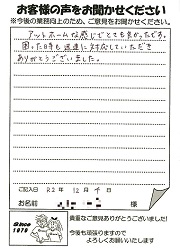 お客様の声をお聞かせください
※今後の業務向上のため、ご意見をお聞かせください。
アットホームな感じでとても良かったです。
困った時も迅速に対応していただき
ありがとうございました。
ご記入日 R2年 12月 日
お名前
Since
1979
貴重なご意見ありがとうございました!
今後も頑張りますので
よろしくお願いいたします